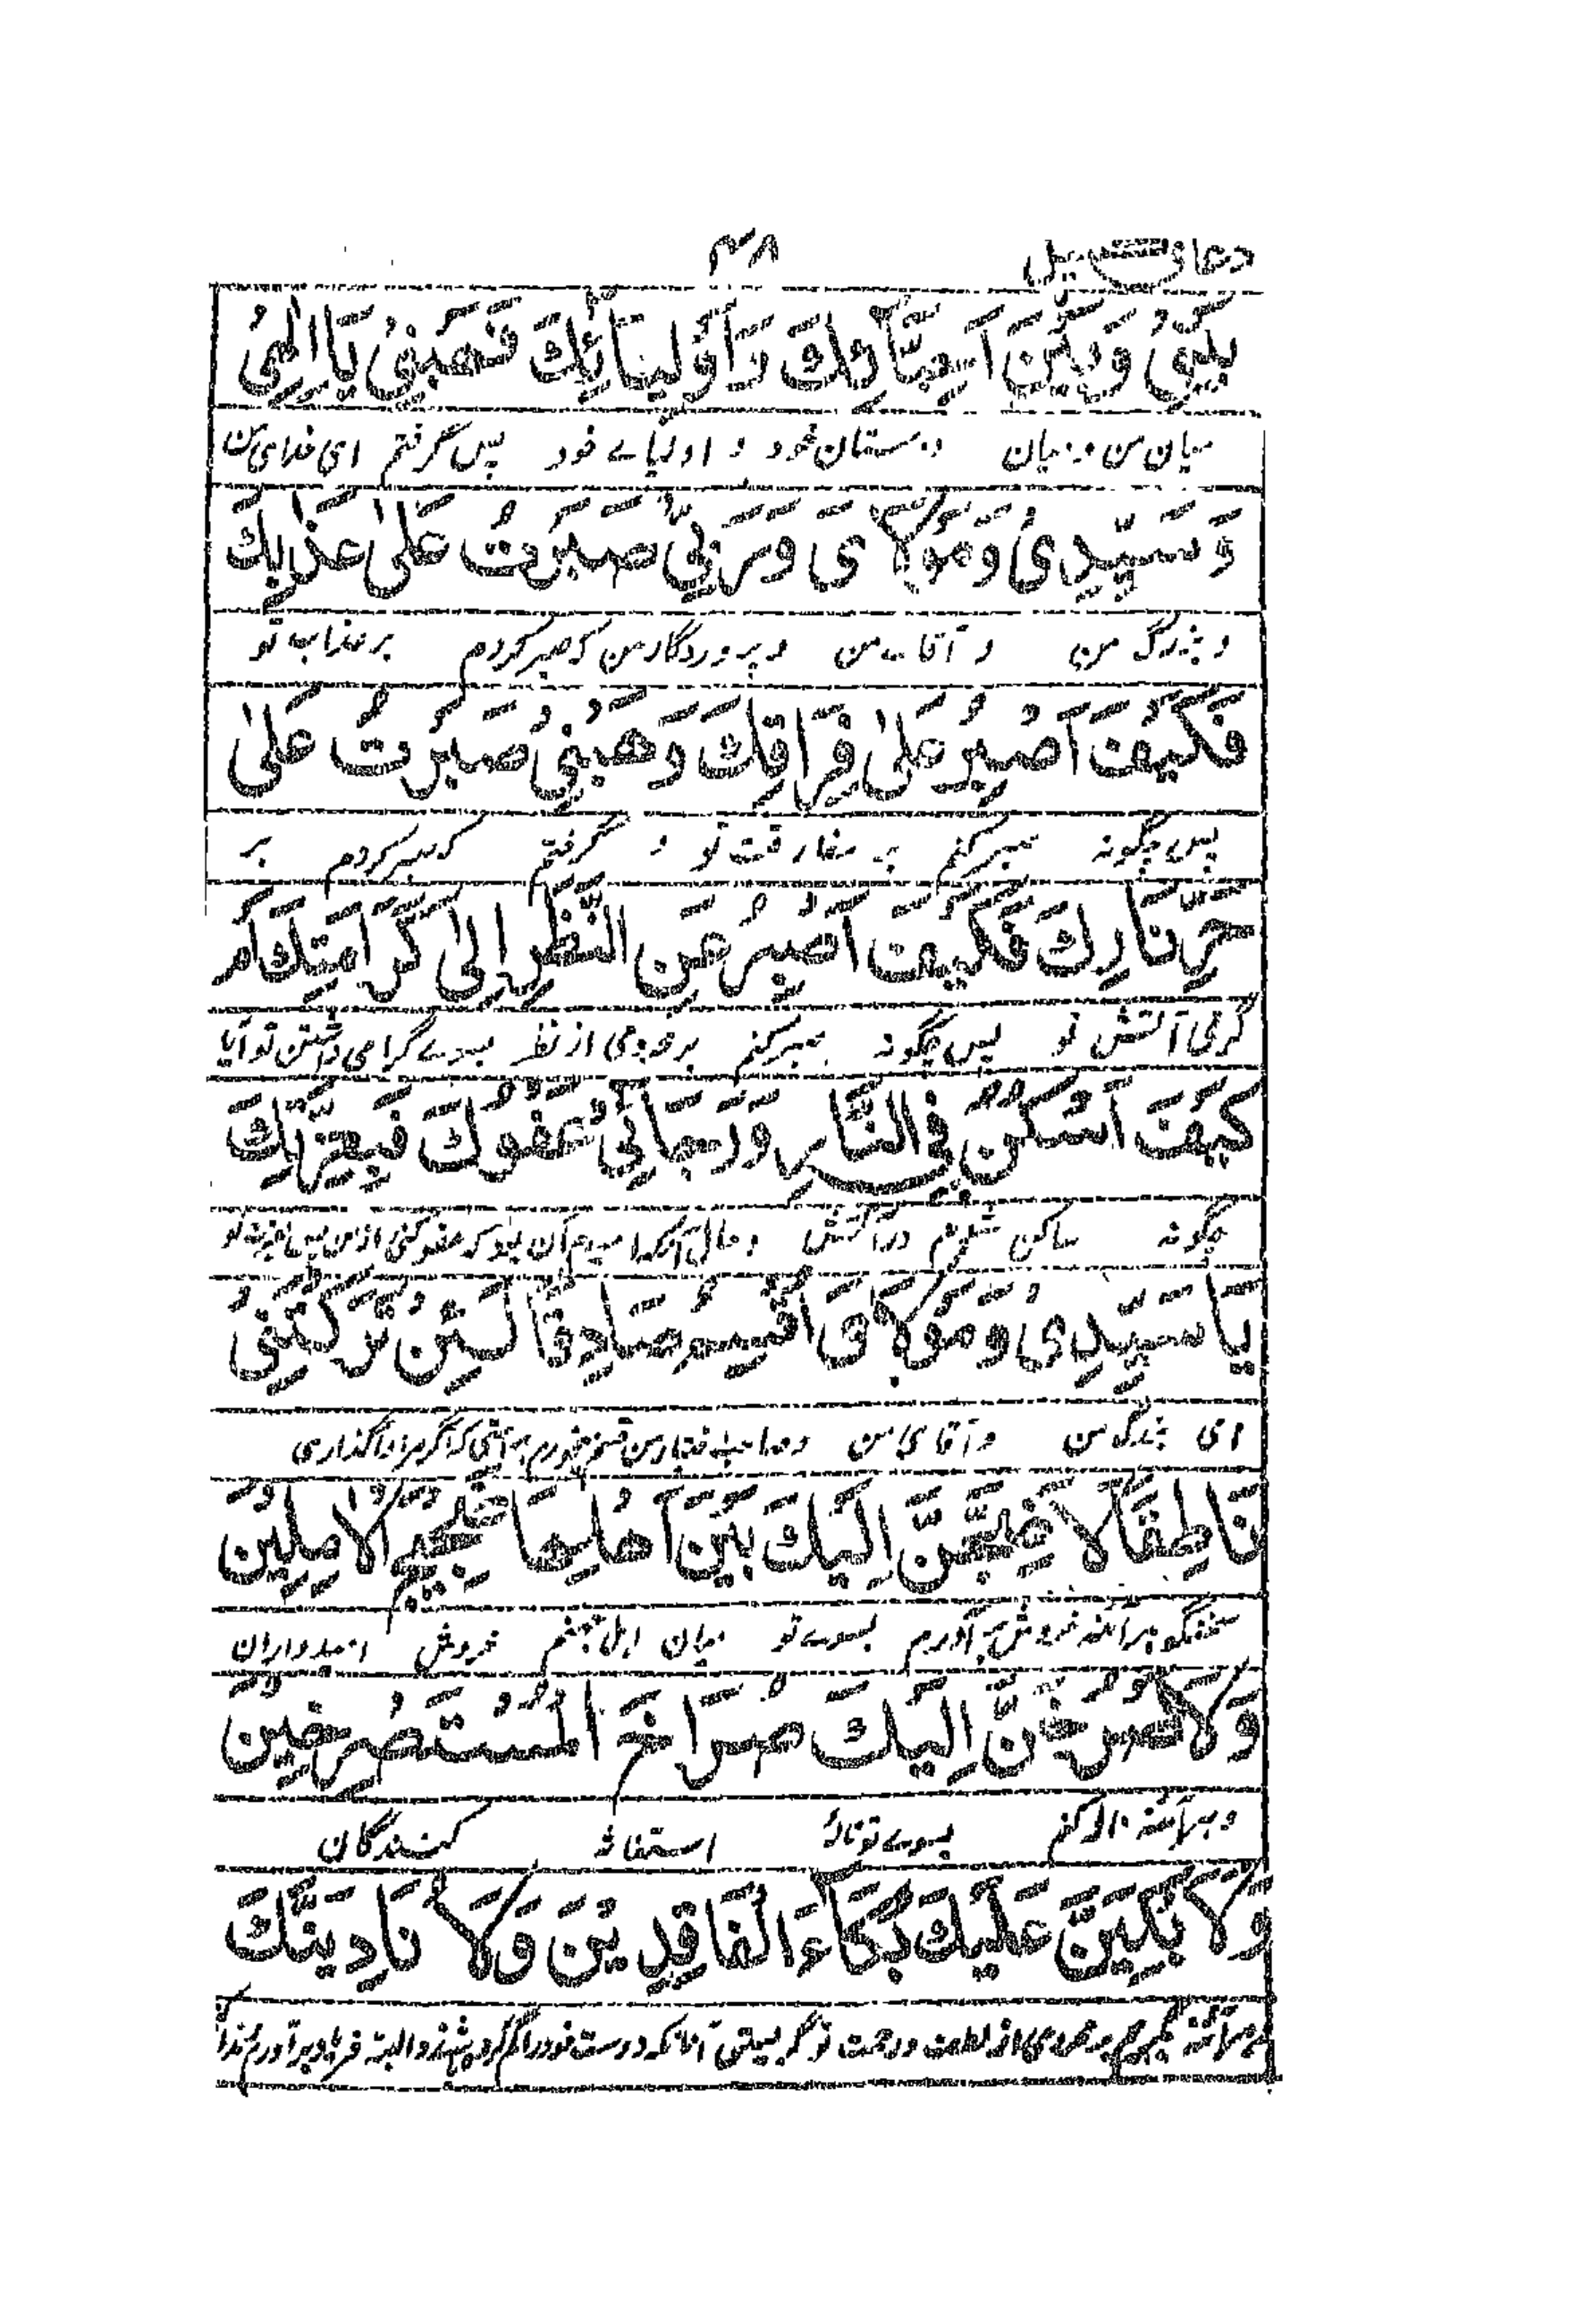 دعای کمیل
۳۸
بَيْنِيْ وَبَيْنَ اَحِبَّآئِكَ وَاَوْلِيَائِكَ فَهَبْنِيْ يَا اِلٰهِيْ
میان من و میان دوستان خود و اولیاے خود پس گرفتم ای خدای من
وَسَيِّدِيْ وَمَوْلَايَ وَرَبِّيْ صَبَرْتُ عَلٰى عَذَابِكَ
و بزرگ من و آقاے من و پروردگار من که صبر کردم بر عذاب تو
فَكَيْفَ اَصْبِرُ عَلٰى فِرَاقِكَ وَهَبْنِيْ صَبَرْتُ عَلٰى
پس چگونه صبر کنم بر مفارقت تو و گرفتم که صبر کردم بر
حَرِّ نَارِكَ فَكَيْفَ اَصْبِرُ عَنِ النَّظَرِ اِلٰى كَرَامَتِكَ اَمْ
گرمی آتش تو پس چگونه صبر کنم بر محرومی از نظر بسوے گرامی داشتن تو آیا
كَيْفَ اَسْكُنُ فِي النَّارِ وَرَجَائِيْ عَفْوُكَ فَبِعِزَّتِكَ
چگونه ساکن شوم در آتش و حال آنکه امیدم آن بود که عفو کنی از من پس بعزت تو
يَا سَيِّدِيْ وَمَوْلَايَ اُقْسِمُ صَادِقًا لَئِنْ تَرَكْتَنِيْ
ای بزرگ من و آقای من قسم میخورم براستی که اگر مرا واگذاری
نَاطِقًا لَاَضِجَّنَّ اِلَيْكَ بَيْنَ اَهْلِهَا ضَجِيْجَ الْاٰمِلِيْنَ
سخنگو هرآئنه خروش برآورم بسوے تو میان اهل جهنم خروش امیدواران
وَلَاَصْرُخَنَّ اِلَيْكَ صُرَاخَ الْمُسْتَصْرِخِيْنَ
و هرآئنه ناله کنم بسوے تو نالۂ استغاثه کنندگان
وَلَاَبْكِيَنَّ عَلَيْكَ بُكَآءَ الْفَاقِدِيْنَ وَلَاُنَادِيَنَّكَ
و هرآئنه بگریم بر محرومی از لطف و رحمت تو گریستن آنانکه دوست خود را گم کرده باشند و البته فریاد برآورم